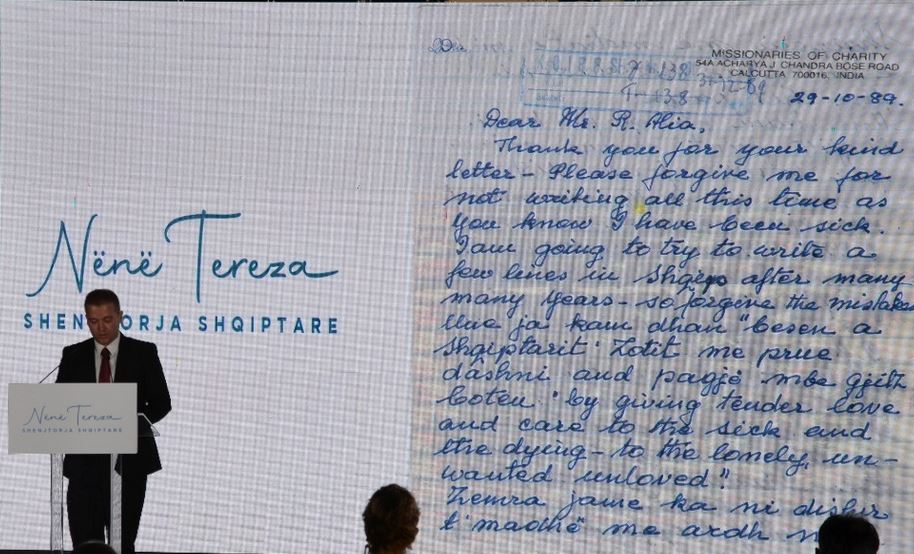 Nënë Tereza
SHENJTORJA SHQIPTARE
Nënë Tereza
SHENJTORJA SHQIPTARE
MISSIONARIES OF CHARITY
54A ACHARYA J. CHANDRA BOSE ROAD
CALCUTTA 700016, INDIA
29-10-89.
Dear Mr. R. Alia,
Thank you for your kind
letter – Please forgive me for
not writing all this time as
you know I have been sick.
I am going to try to write a
few lines in Shqip after many
many years – so forgive the mistakes
Une ja kam dhan "besen a
Shqiptarit" Zotit me prue
dashni and pagjë mbe gjith
boten. "by giving tender love
and care to the sick and
the dying – to the lonely, un-
wanted unloved"
Zemra jame ka ni dishir
t'madhë me ardh